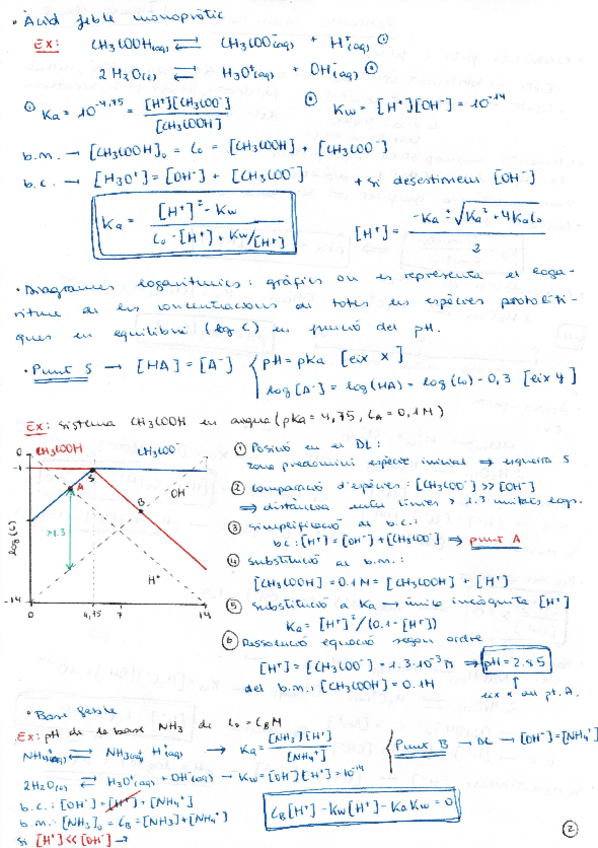 · Àcid feble monopròtic
Ex: CH3COOH(aq) ⇄ CH3COO⁻(aq) + H⁺(aq) ①
2H2O(l) ⇄ H3O⁺(aq) + OH⁻(aq) ②
① Ka = 10^-4,75 = [H⁺][CH3COO⁻] / [CH3COOH]
② Kw = [H⁺][OH⁻] = 10^-14
b.m. → [CH3COOH]o = Co = [CH3COOH] + [CH3COO⁻]
b.c. → [H3O⁺] = [OH⁻] + [CH3COO⁻]
+ si desestimem [OH⁻]
Ka = [H⁺]² - Kw / Co - [H⁺] + Kw/[H⁺]
[H⁺] = -Ka ± √Ka² + 4KaCo / 2
· Diagrames logarítmics: gràfics on es representa el loga-
ritme de les concentracions de totes les espècies protolíti-
ques en equilibri (log C) en funció del pH.
· Punt S → [HA] = [A⁻] { pH = pKa [eix x]
log[A⁻] = log(HA) = log(Co) - 0,3 [eix y]
Ex: sistema CH3COOH en aigua (pKa = 4,75, CA = 0,1M)
CH3COOH
CH3COO⁻
0
-1
S
A
OH⁻
B
>1.3
log(C)
H⁺
-14
0
4,75
7
14
① Posició en el DL:
zona predomini espècie inicial ⇒ esquerra S
② Comparació d'espècies: [CH3COO⁻] >> [OH⁻]
⇒ distància entre línies > 1.3 unitats logs.
③ Simplificació al b.c.:
b.c: [H⁺] = [OH⁻] + [CH3COO⁻] ⇒ punt A
④ Substitució al b.m.:
[CH3COOH] = 0.1M = [CH3COOH] + [H⁺]
⑤ Substitució a Ka → única incògnita [H⁺]
Ka = [H⁺]²/(0.1-[H⁺])
⑥ Ressolució equació segon ordre
[H⁺] = [CH3COO⁻] = 1.3·10⁻³M ⇒ pH = 2.85
del b.m.: [CH3COOH] = 0.1M
eix x del pt. A.
· Base feble
Ex: pH de la base NH3 de Co = CB M
NH4⁺(aq) ⇄ NH3(aq) H⁺(aq) → Ka = [NH3][H⁺] / [NH4⁺]
{ Punt B → DL → [OH⁻] = [NH4⁺]
2H2O(l) ⇄ H3O⁺(aq) + OH⁻(aq) → Kw = [OH⁻][H⁺] = 10⁻¹⁴
b.c.: [OH⁻] = [H⁺] + [NH4⁺]
b.m.: [NH3]o = CB = [NH3] + [NH4⁺]
CB[H⁺] - Kw[H⁺] - KaKw = 0
si [H⁺] << [OH⁻] →
2